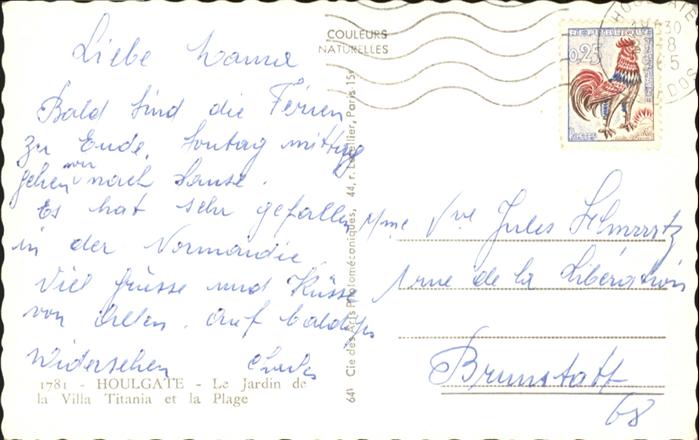 Liebe Mama
Bald sind die Ferien
zu Ende. Sontag mittag
gehen wir nach Hause.
Es hat sehr gefallen
in der Normandie
Viel Grüsse und Küsse
von allen. auf baldiges
Widersehen Charles
1781 - HOULGATE - Le Jardin de
la Villa Titania et la Plage
COULEURS
NATURELLES
641 Cie des Arts Photomécaniques, 44, r. Letellier, Paris 15e
HOULGATE
0,25
Mme Vve Jules Schwartz
1 rue de la Libération
Brunstatt
68